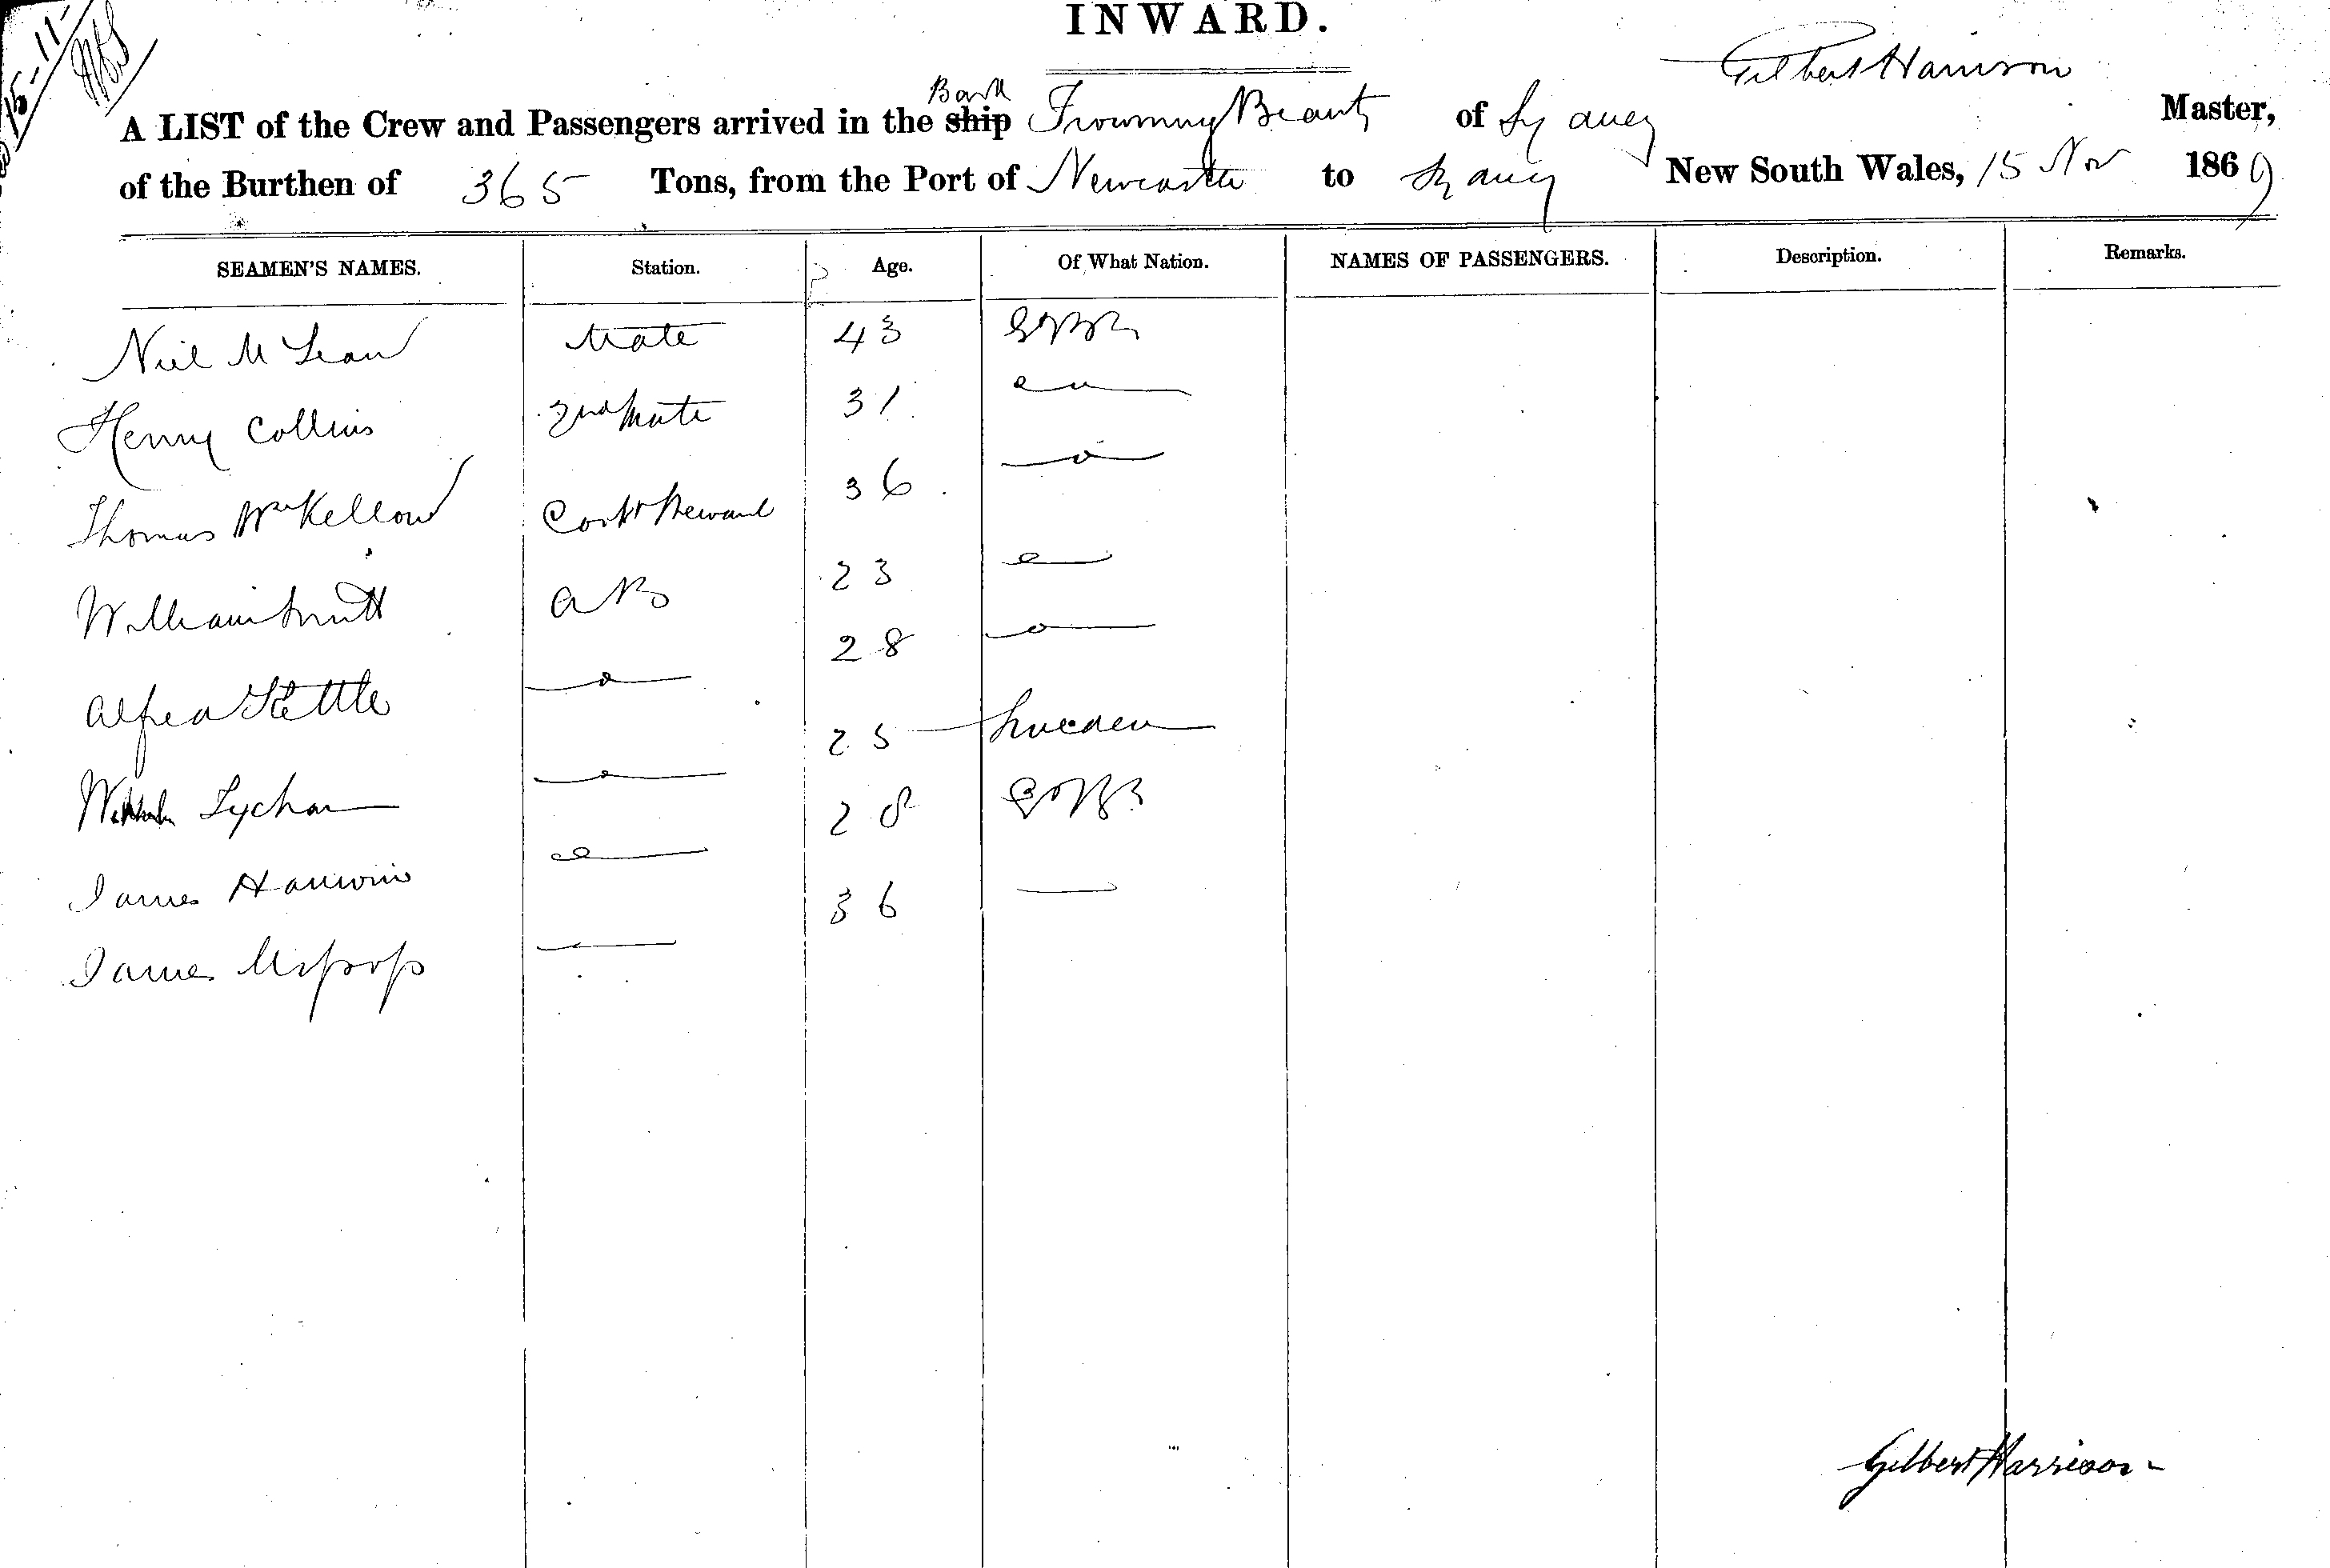 15-11-
INWARD.
Gilbert Harrison
Bark
A LIST of the Crew and Passengers arrived in the ship Beauty of Sydney Master,
of the Burthen of 365 Tons, from the Port of Newcastle to Sydney New South Wales, 15 Nov 1869
SEAMEN'S NAMES. Station. Age. Of What Nation. NAMES OF PASSENGERS. Description. Remarks.
Niel McLean Mate 43
Henry Collins 2nd Mate 31
Thomas McKellow Cook & Steward 36
William Smith AB 23
Alfred Kettle 28
25 Sweden
James 28
James 36
Gilbert Harrison